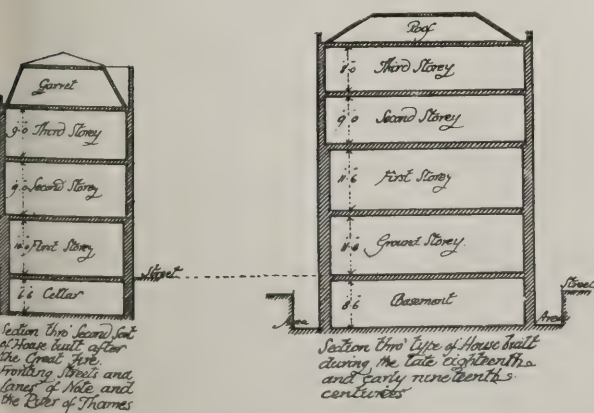 Garret
9.0 Third Storey
9.0 Second Storey
First Storey
6.6 Cellar
Street
Section thro' Second Sort
of House built after
the Great Fire,
Fronting Streets and
Lanes of Note and
the River of Thames
Roof
Third Storey
9.0 Second Storey
11.6 First Storey
Ground Storey
8.6 Basement
Area
Area
Street
Section thro' type of House built
during the late eighteenth
and early nineteenth
centuries